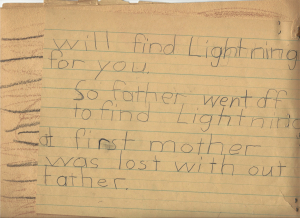 will find Lightning
for you.
So father went off
to find Lightning
at first mother
was lost with out
father.